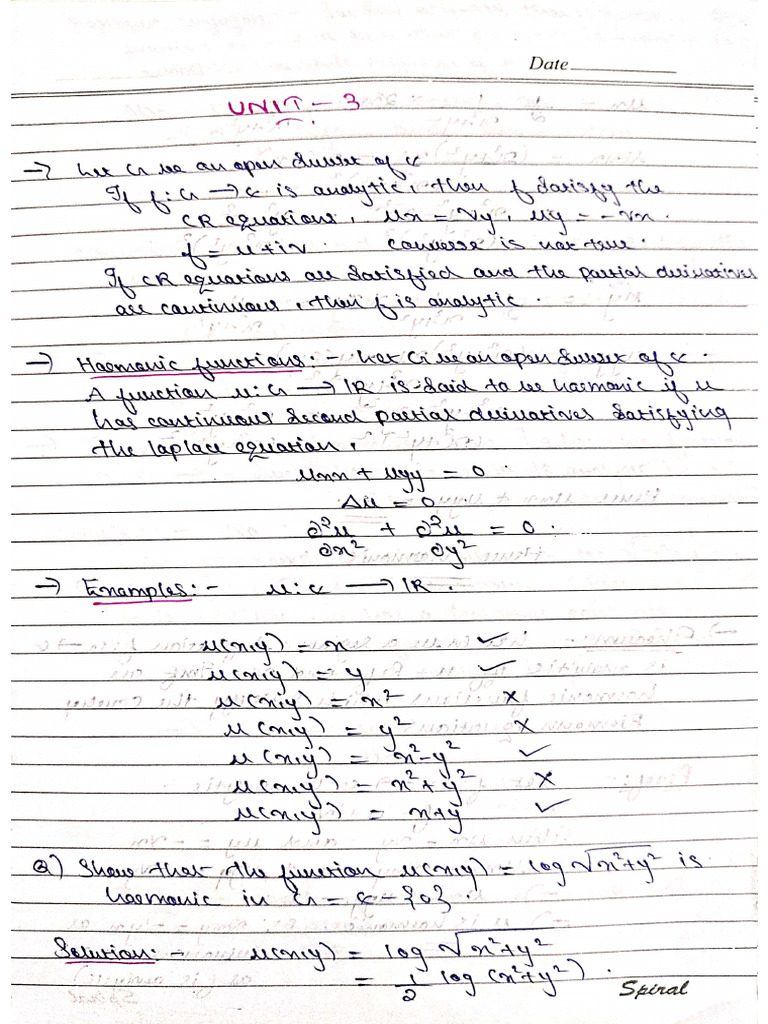 Date
UNIT - 3
→ Let G be an open subset of ℂ
If f: G → ℂ is analytic, then f satisfy the
CR equations, ux = vy, uy = -vx.
f = u+iv. Converse is not true.
If CR equations are satisfied and the partial derivatives
are continuous, then f is analytic.
→ Harmonic functions:- Let G be an open subset of ℂ.
A function u: G → IR is said to be harmonic if u
has continuous second partial derivatives satisfying
the laplace equation,
uxx + uyy = 0.
Δu = 0
∂²u/∂x² + ∂²u/∂y² = 0.
→ Examples:- u: ℂ → IR.
u(x,y) = x ✓
u(x,y) = y ✓
u(x,y) = x² ×
u(x,y) = y² ×
u(x,y) = x²-y² ✓
u(x,y) = x²+y² ×
u(x,y) = x+y ✓
Q) Show that the function u(x,y) = log √x²+y² is
harmonic in G = ℂ - {0}.
Solution:- u(x,y) = log √x²+y²
= 1/2 log (x²+y²).
Spiral